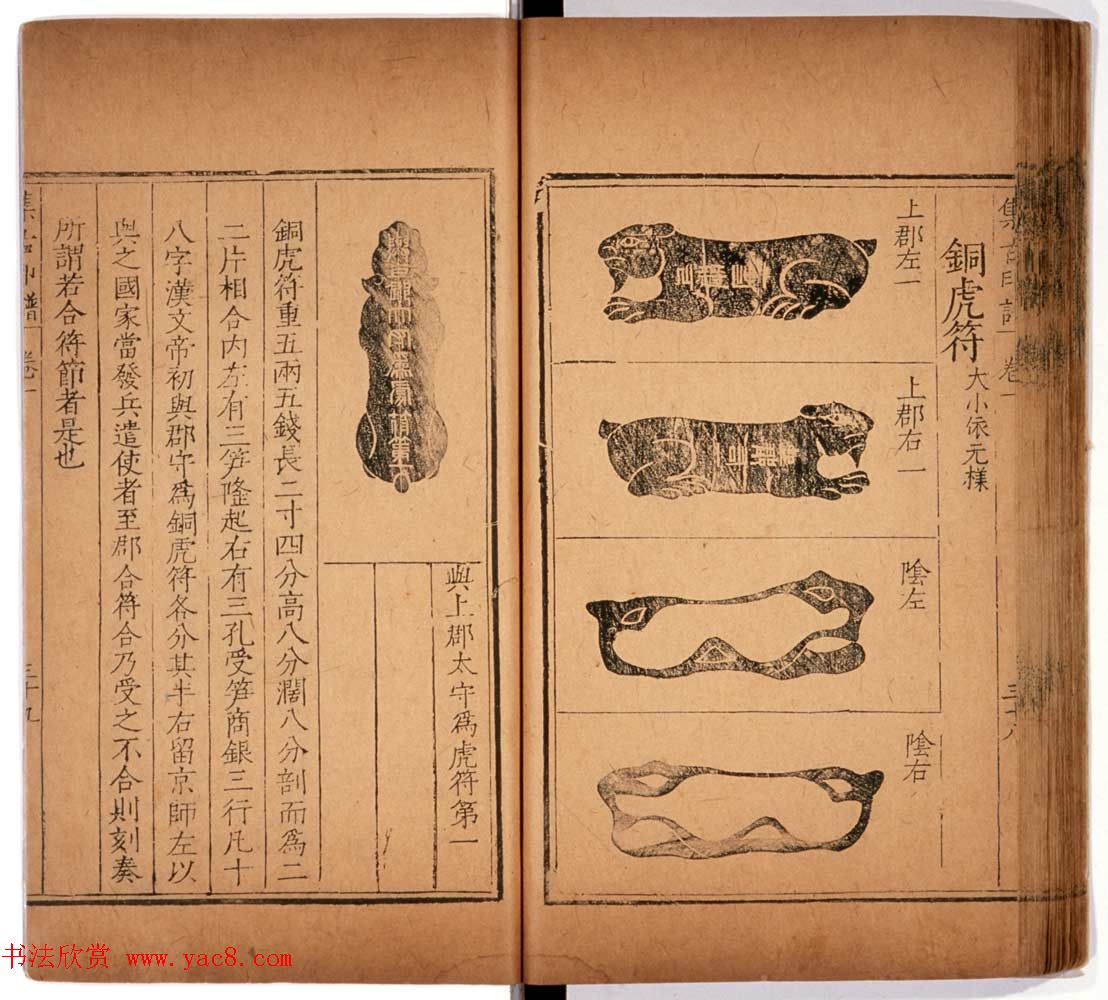 集古印譜 卷一 三十八
銅虎符 大小依元樣
上郡左一
上郡右一
陰左
陰右
與上郡太守爲虎符第一
銅虎符重五兩五錢長二寸四分高八分濶八分剖而爲二
二片相合内左有三笋隆起右有三孔受笋商銀三行凡十
八字漢文帝初與郡守爲銅虎符各分其半右留京師左以
與之國家當發兵遣使者至郡合符合乃受之不合則刻奏
所謂若合符節者是也
集古印譜 卷一 三十九
书法欣赏 www.yac8.com